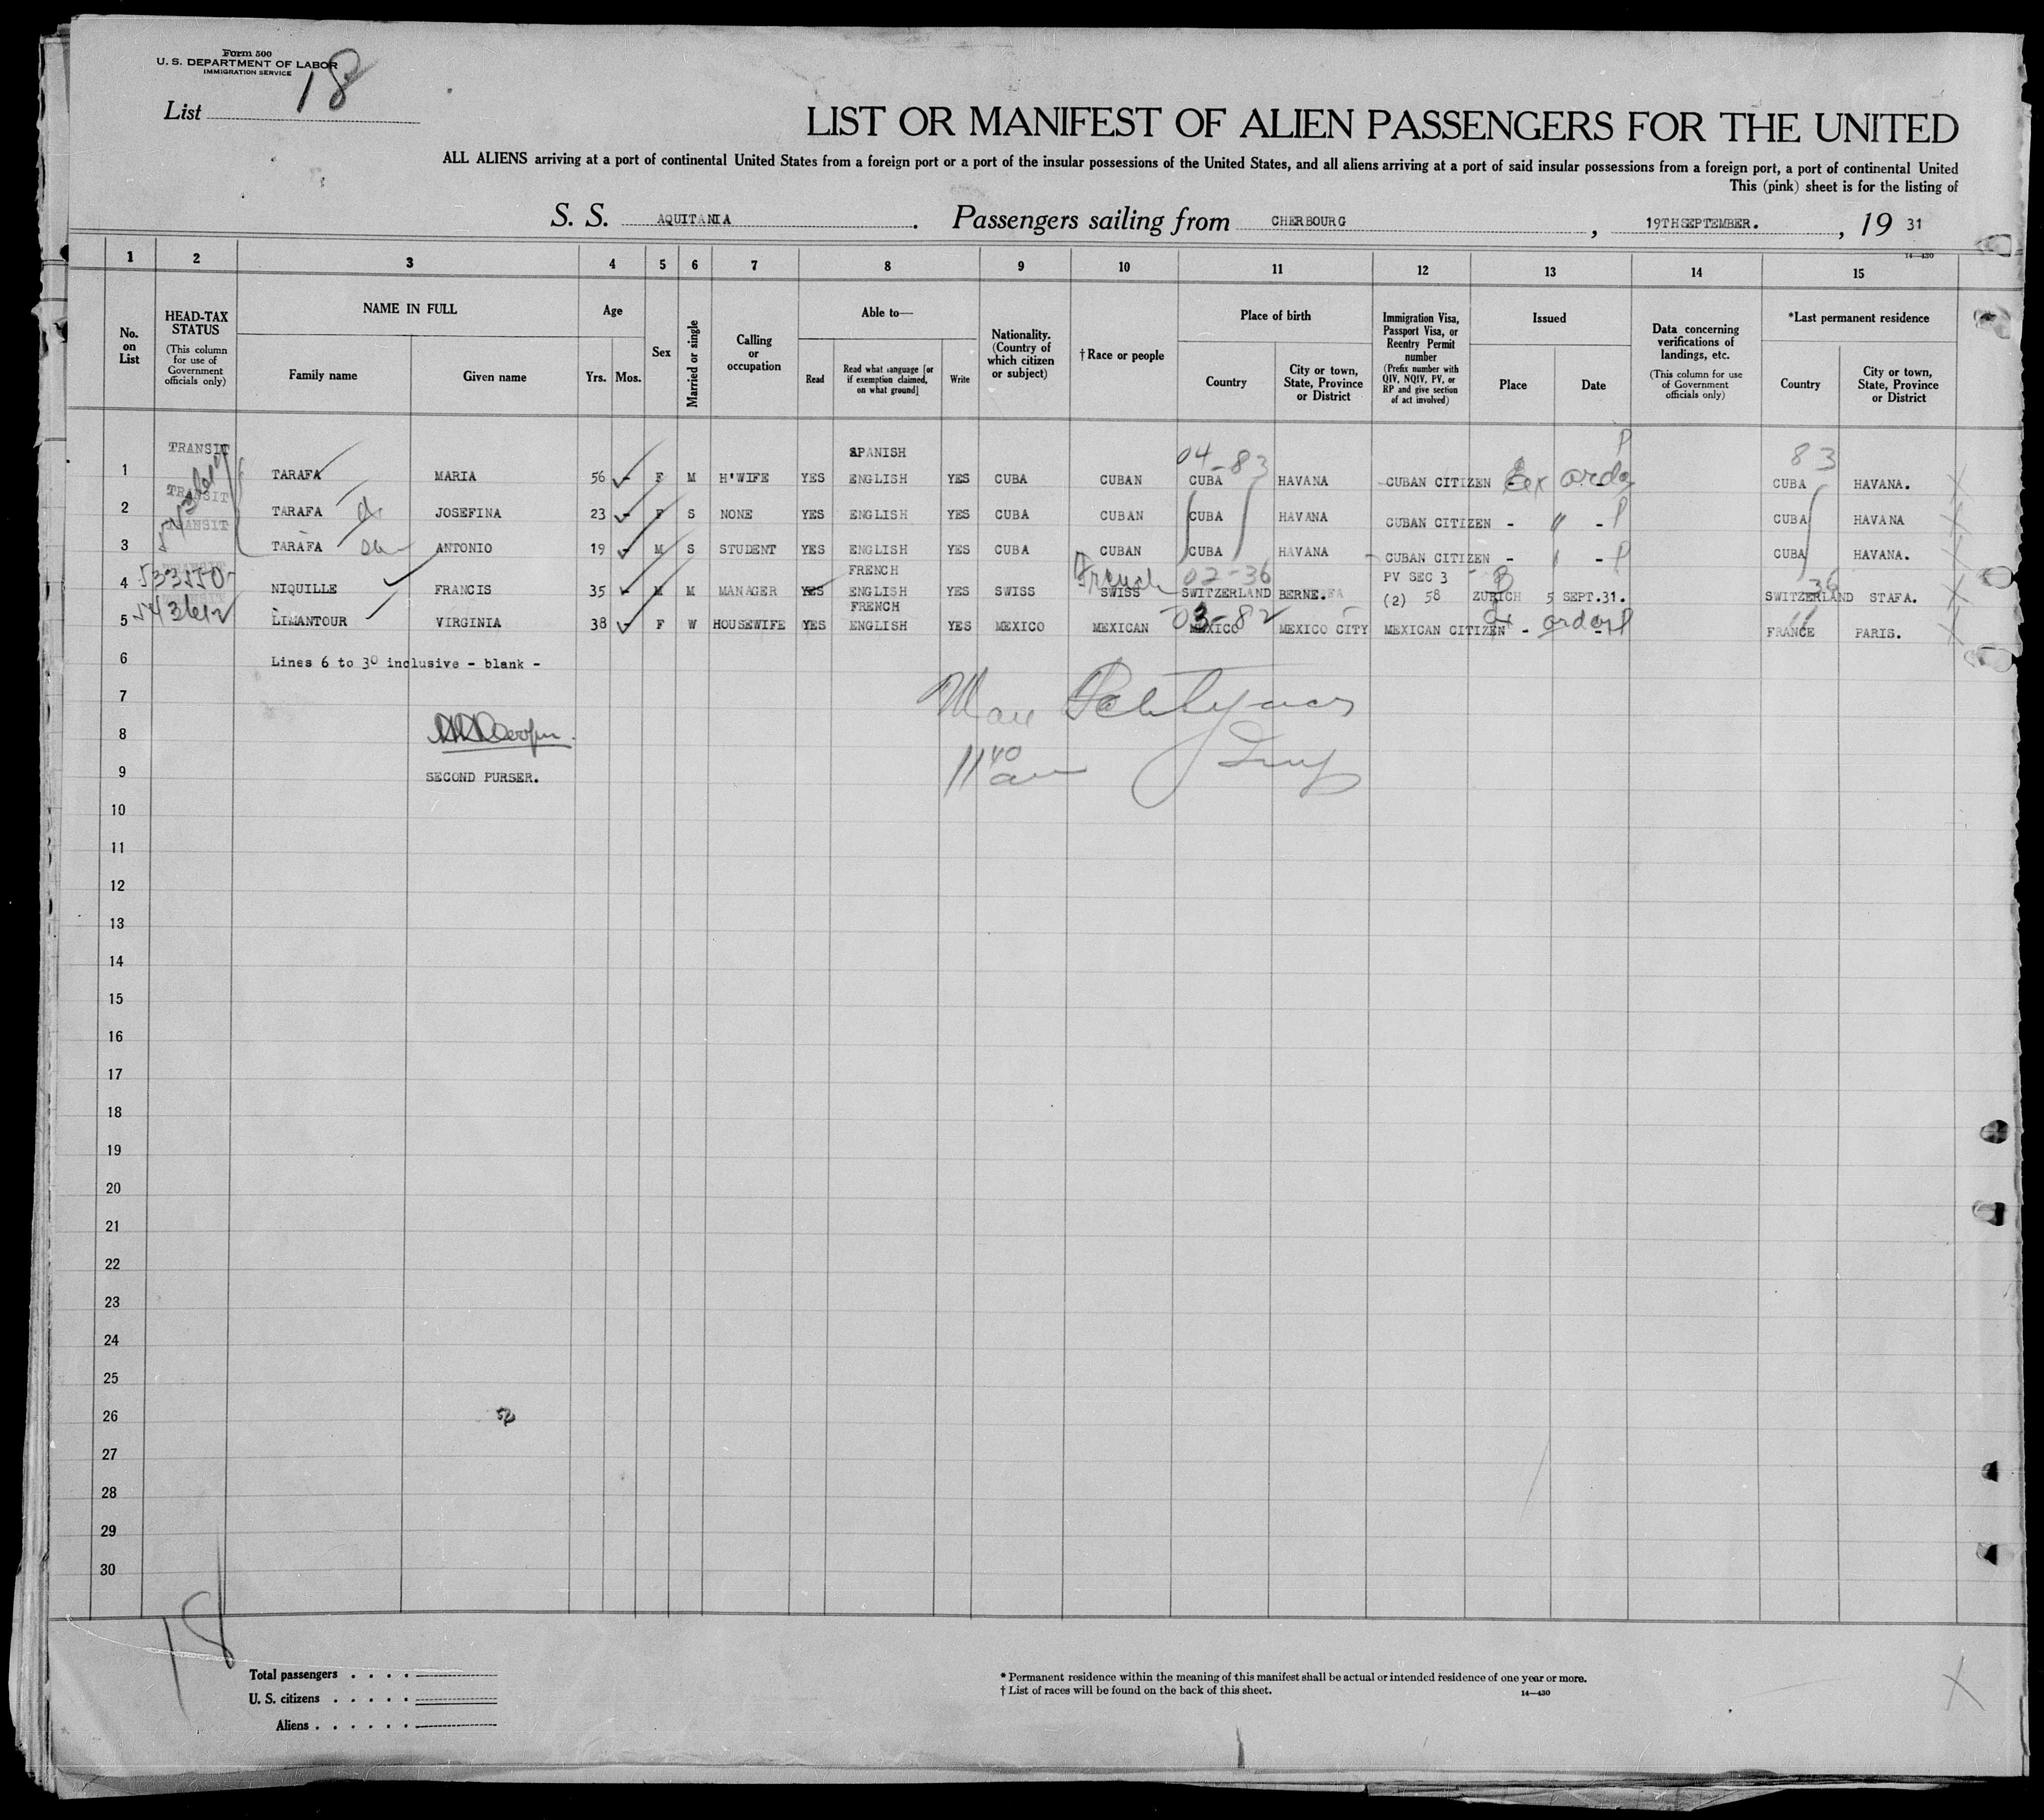 Form 500
U. S. DEPARTMENT OF LABOR
IMMIGRATION SERVICE
List 18
LIST OR MANIFEST OF ALIEN PASSENGERS FOR THE UNITED
ALL ALIENS arriving at a port of continental United States from a foreign port or a port of the insular possessions of the United States, and all aliens arriving at a port of said insular possessions from a foreign port, a port of continental United
This (pink) sheet is for the listing of
S. S. AQUITANIA. Passengers sailing from CHERBOURG, 19TH SEPTEMBER., 19 31
14—430
1 2 3 4 5 6 7 8 9 10 11 12 13 14 15
No. on List
HEAD-TAX STATUS
(This column for use of Government officials only)
NAME IN FULL
Family name
Given name
Age
Yrs. Mos.
Sex
Married or single
Calling or occupation
Able to—
Read
Read what language [or if exemption claimed, on what ground]
Write
Nationality. (Country of which citizen or subject)
†Race or people
Place of birth
Country
City or town, State, Province or District
Immigration Visa, Passport Visa, or Reentry Permit number
(Prefix number with QIV, NQIV, PV, or RP and give section of act involved)
Issued
Place
Date
Data concerning verifications of landings, etc.
(This column for use of Government officials only)
*Last permanent residence
Country
City or town, State, Province or District
TRANSIT SPANISH 04-83 P 83
1 TARAFA MARIA 56 - F M H'WIFE YES ENGLISH YES CUBA CUBAN CUBA HAVANA CUBAN CITIZEN - CUBA HAVANA.
TRANSIT
2 TARAFA de JOSEFINA 23 - F S NONE YES ENGLISH YES CUBA CUBAN CUBA HAVANA CUBAN CITIZEN - " - P CUBA HAVANA
TRANSIT
3 TARAFA ANTONIO 19 - M S STUDENT YES ENGLISH YES CUBA CUBAN CUBA HAVANA CUBAN CITIZEN - - P CUBA HAVANA.
533550 FRENCH French 02-36 PV SEC 3 36
4 NIQUILLE FRANCIS 35 - M M MANAGER YES ENGLISH YES SWISS SWISS SWITZERLAND BERNE. (2) 58 ZURICH 5 SEPT.31. SWITZERLAND STAFA.
543612 FRENCH 03-82
5 LIMANTOUR VIRGINIA 38 - F W HOUSEWIFE YES ENGLISH YES MEXICO MEXICAN MEXICO MEXICO CITY MEXICAN CITIZEN - - P FRANCE PARIS.
6 Lines 6 to 30 inclusive - blank -
7
8
9 SECOND PURSER. 11 40 am
10
11
12
13
14
15
16
17
18
19
20
21
22
23
24
25
26
27
28
29
30
18
Total passengers
U. S. citizens
Aliens
* Permanent residence within the meaning of this manifest shall be actual or intended residence of one year or more.
† List of races will be found on the back of this sheet.
14—430